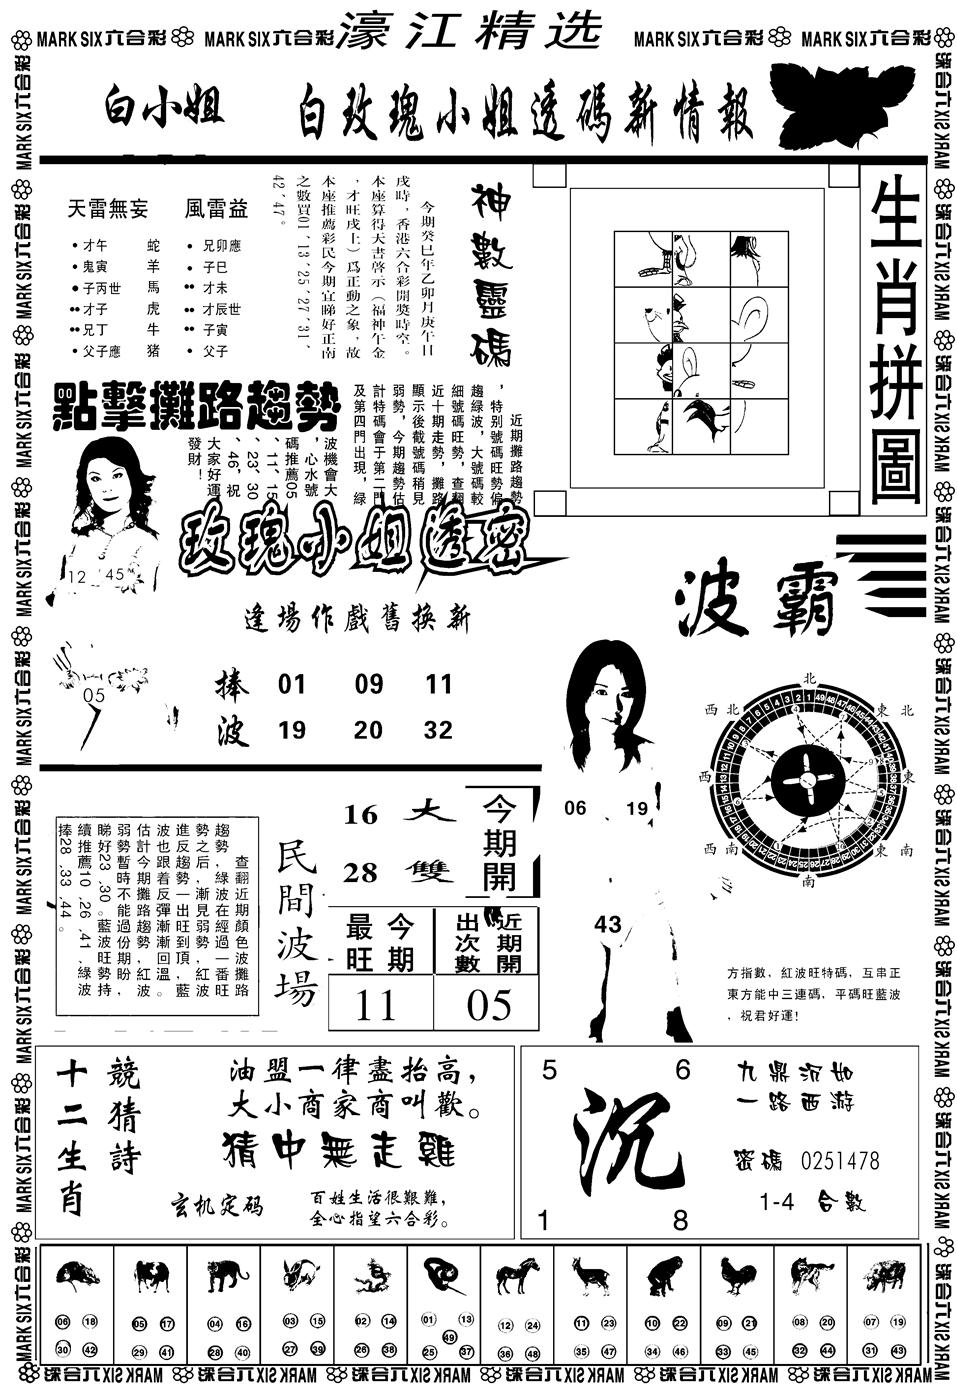 MARK SIX六合彩 MARK SIX六合彩 濠江精选 MARK SIX六合彩 MARK SIX六合彩
白小姐 白玫瑰小姐透碼新情報
天雷無妄 風雷益
才午 蛇 兄卯應
鬼寅 羊 子巳
子丙世 馬 才未
才子 虎 才辰世
兄丁 牛 子寅
父子應 猪 父子
神數靈碼
今期癸巳年乙卯月庚午日
戌時，香港六合彩開獎時空。
本座算得天書啓示（福神午金
，才旺戌上）爲正動之象，故
本座推薦彩民今期宜睇好正南
之數買01、13、25、27、31、
42、47。
生肖拼圖
點擊攤路趨勢
近期攤路趨勢
，特别號碼旺勢偏
趨緑波，大號碼較
細號碼旺勢，查翻
近十期走勢，攤路
顯示後截號碼稍見
弱勢，今期趨勢估
計特碼會于第二門
及第四門出現，緑
波機會大
，心水號
碼推薦05
、11、15
、23、30
、46，祝
大家好運
發財！
12 45
05
玫瑰小姐透密
逢場作戲舊換新
捧 01 09 11
波 19 20 32
波霸
06 19
43
北
西北 東北
西 東
西南 東南
南
方指數，紅波旺特碼，互串正
東方能中三連碼，平碼旺藍波
，祝君好運！
查翻近期顔色波攤路
趨勢，緑波在經過一番旺
勢之后，漸見弱勢，紅波
進反趨勢一出旺到頂，藍
波也跟着反彈漸漸回温。
估計今期攤路趨勢，紅波
弱勢暫時不能過份期盼，
睇好23、30。藍波旺勢持
續推薦10、26、41，緑波
捧28、33、44。
民間波場
16 大
28 雙
今期開
最旺 今期
近期開出次數
11 05
十二生肖
競猜詩
油盟一律盡抬高，
大小商家商叫歡。
猜中無走雞
玄机定码
百姓生活很艱難，
全心指望六合彩。
5 6
沉
1 8
九鼎沉如
一路西游
密碼 0251478
1-4 合數
06 18 05 17 04 16 03 15 02 14 01 13 12 24 11 23 10 22 09 21 08 20 07 19
49
30 42 29 41 28 40 27 39 26 38 25 37 36 48 35 47 34 46 33 45 32 44 31 43
MARK SIX六合彩 MARK SIX六合彩 MARK SIX六合彩 MARK SIX六合彩 MARK SIX六合彩 MARK SIX六合彩